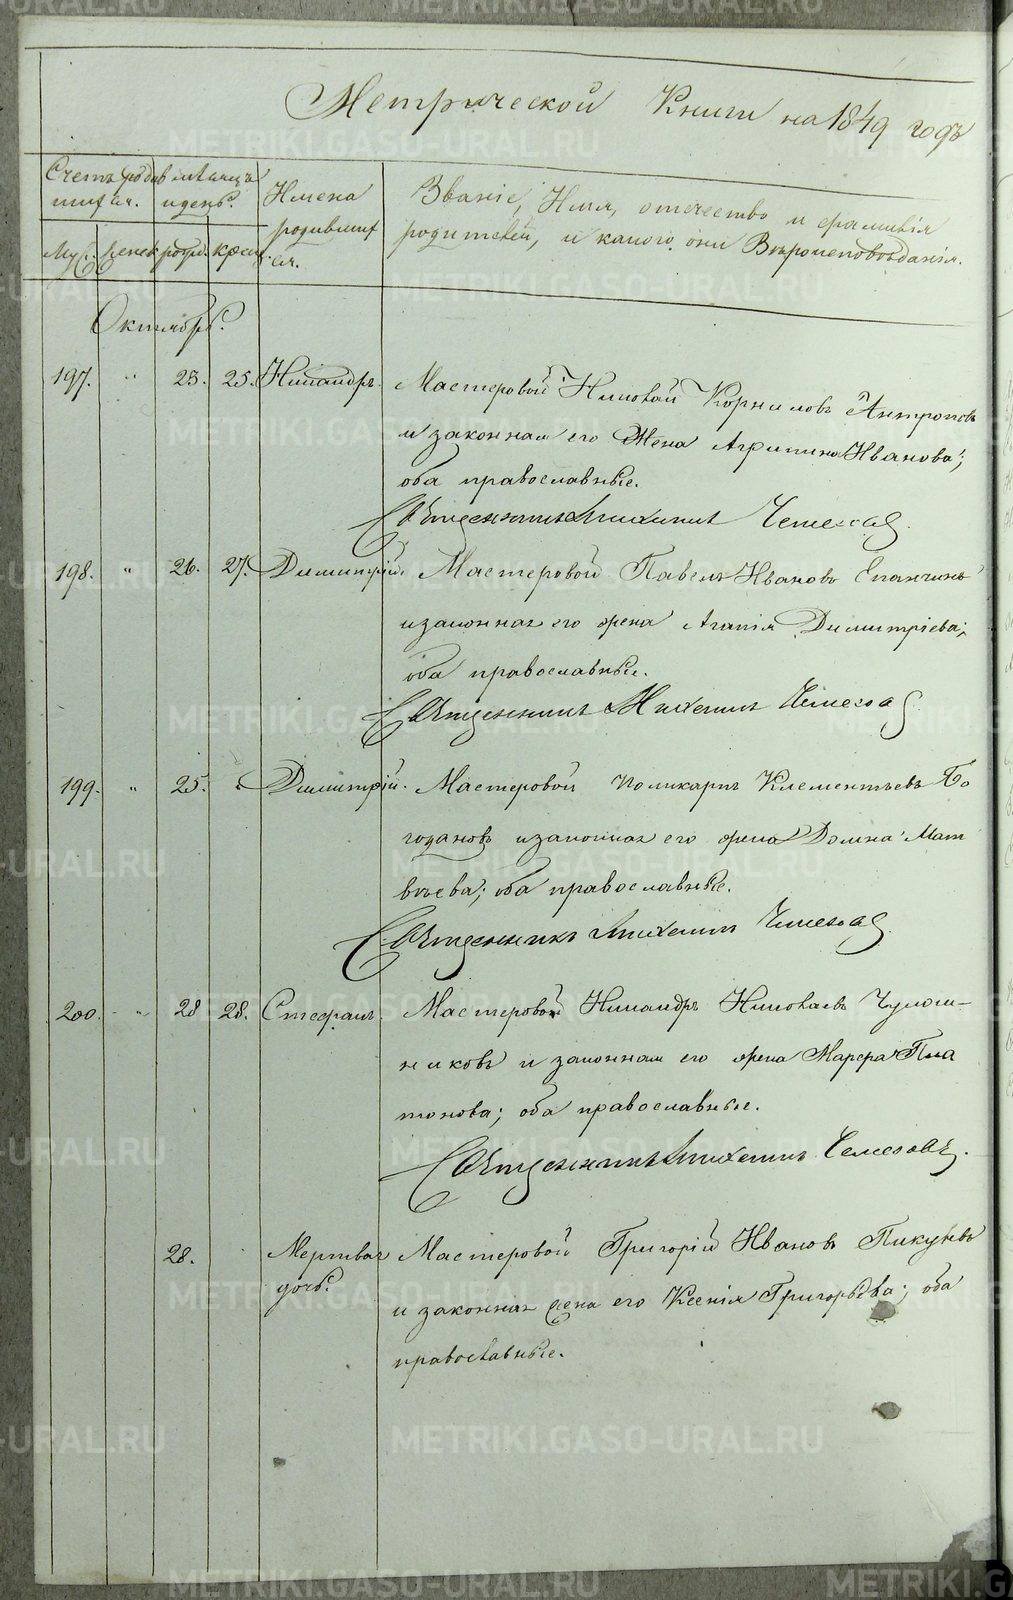 Метрической Книги на 1849 годъ
Счетъ родив
шихся.
месяцъ
и день.
Имена
родивших
ся.
Званіе, Имя, отечество и фамилія
родителей, и какого они Вѣроисповѣданія.
Муж. женск. рожд. крещ.
Октябрь.
197. " 23. 25. Никандръ. Мастеровой Николай Корниловъ Антроповъ
и законная его Жена Агрипина Иванова;
оба православные.
Священникъ Михаилъ Чемесовъ
198. " 26. 27. Димитрій. Мастеровой Павелъ Ивановъ Епанчинъ
и законная его жена Агапія Димитріева;
оба православные.
Священникъ Михаилъ Чемесовъ
199. " 25. Димитрій. Мастеровой Поликарпъ Клементьевъ Бо
гдановъ и законная его жена Домна Мат
вѣева; оба православные.
Священникъ Михаилъ Чемесовъ
200. " 28 28. Стефанъ. Мастеровой Никандръ Николаевъ
никовъ и законная его жена Марфа Пла
тонова; оба православные.
Священникъ Михаилъ Чемесовъ.
28. Мертвая Мастеровой Григорій Ивановъ Пикуновъ
дочь. и законная жена его Ксенія Григорьева; оба
православные.
METRIKI.GASO-URAL.RU